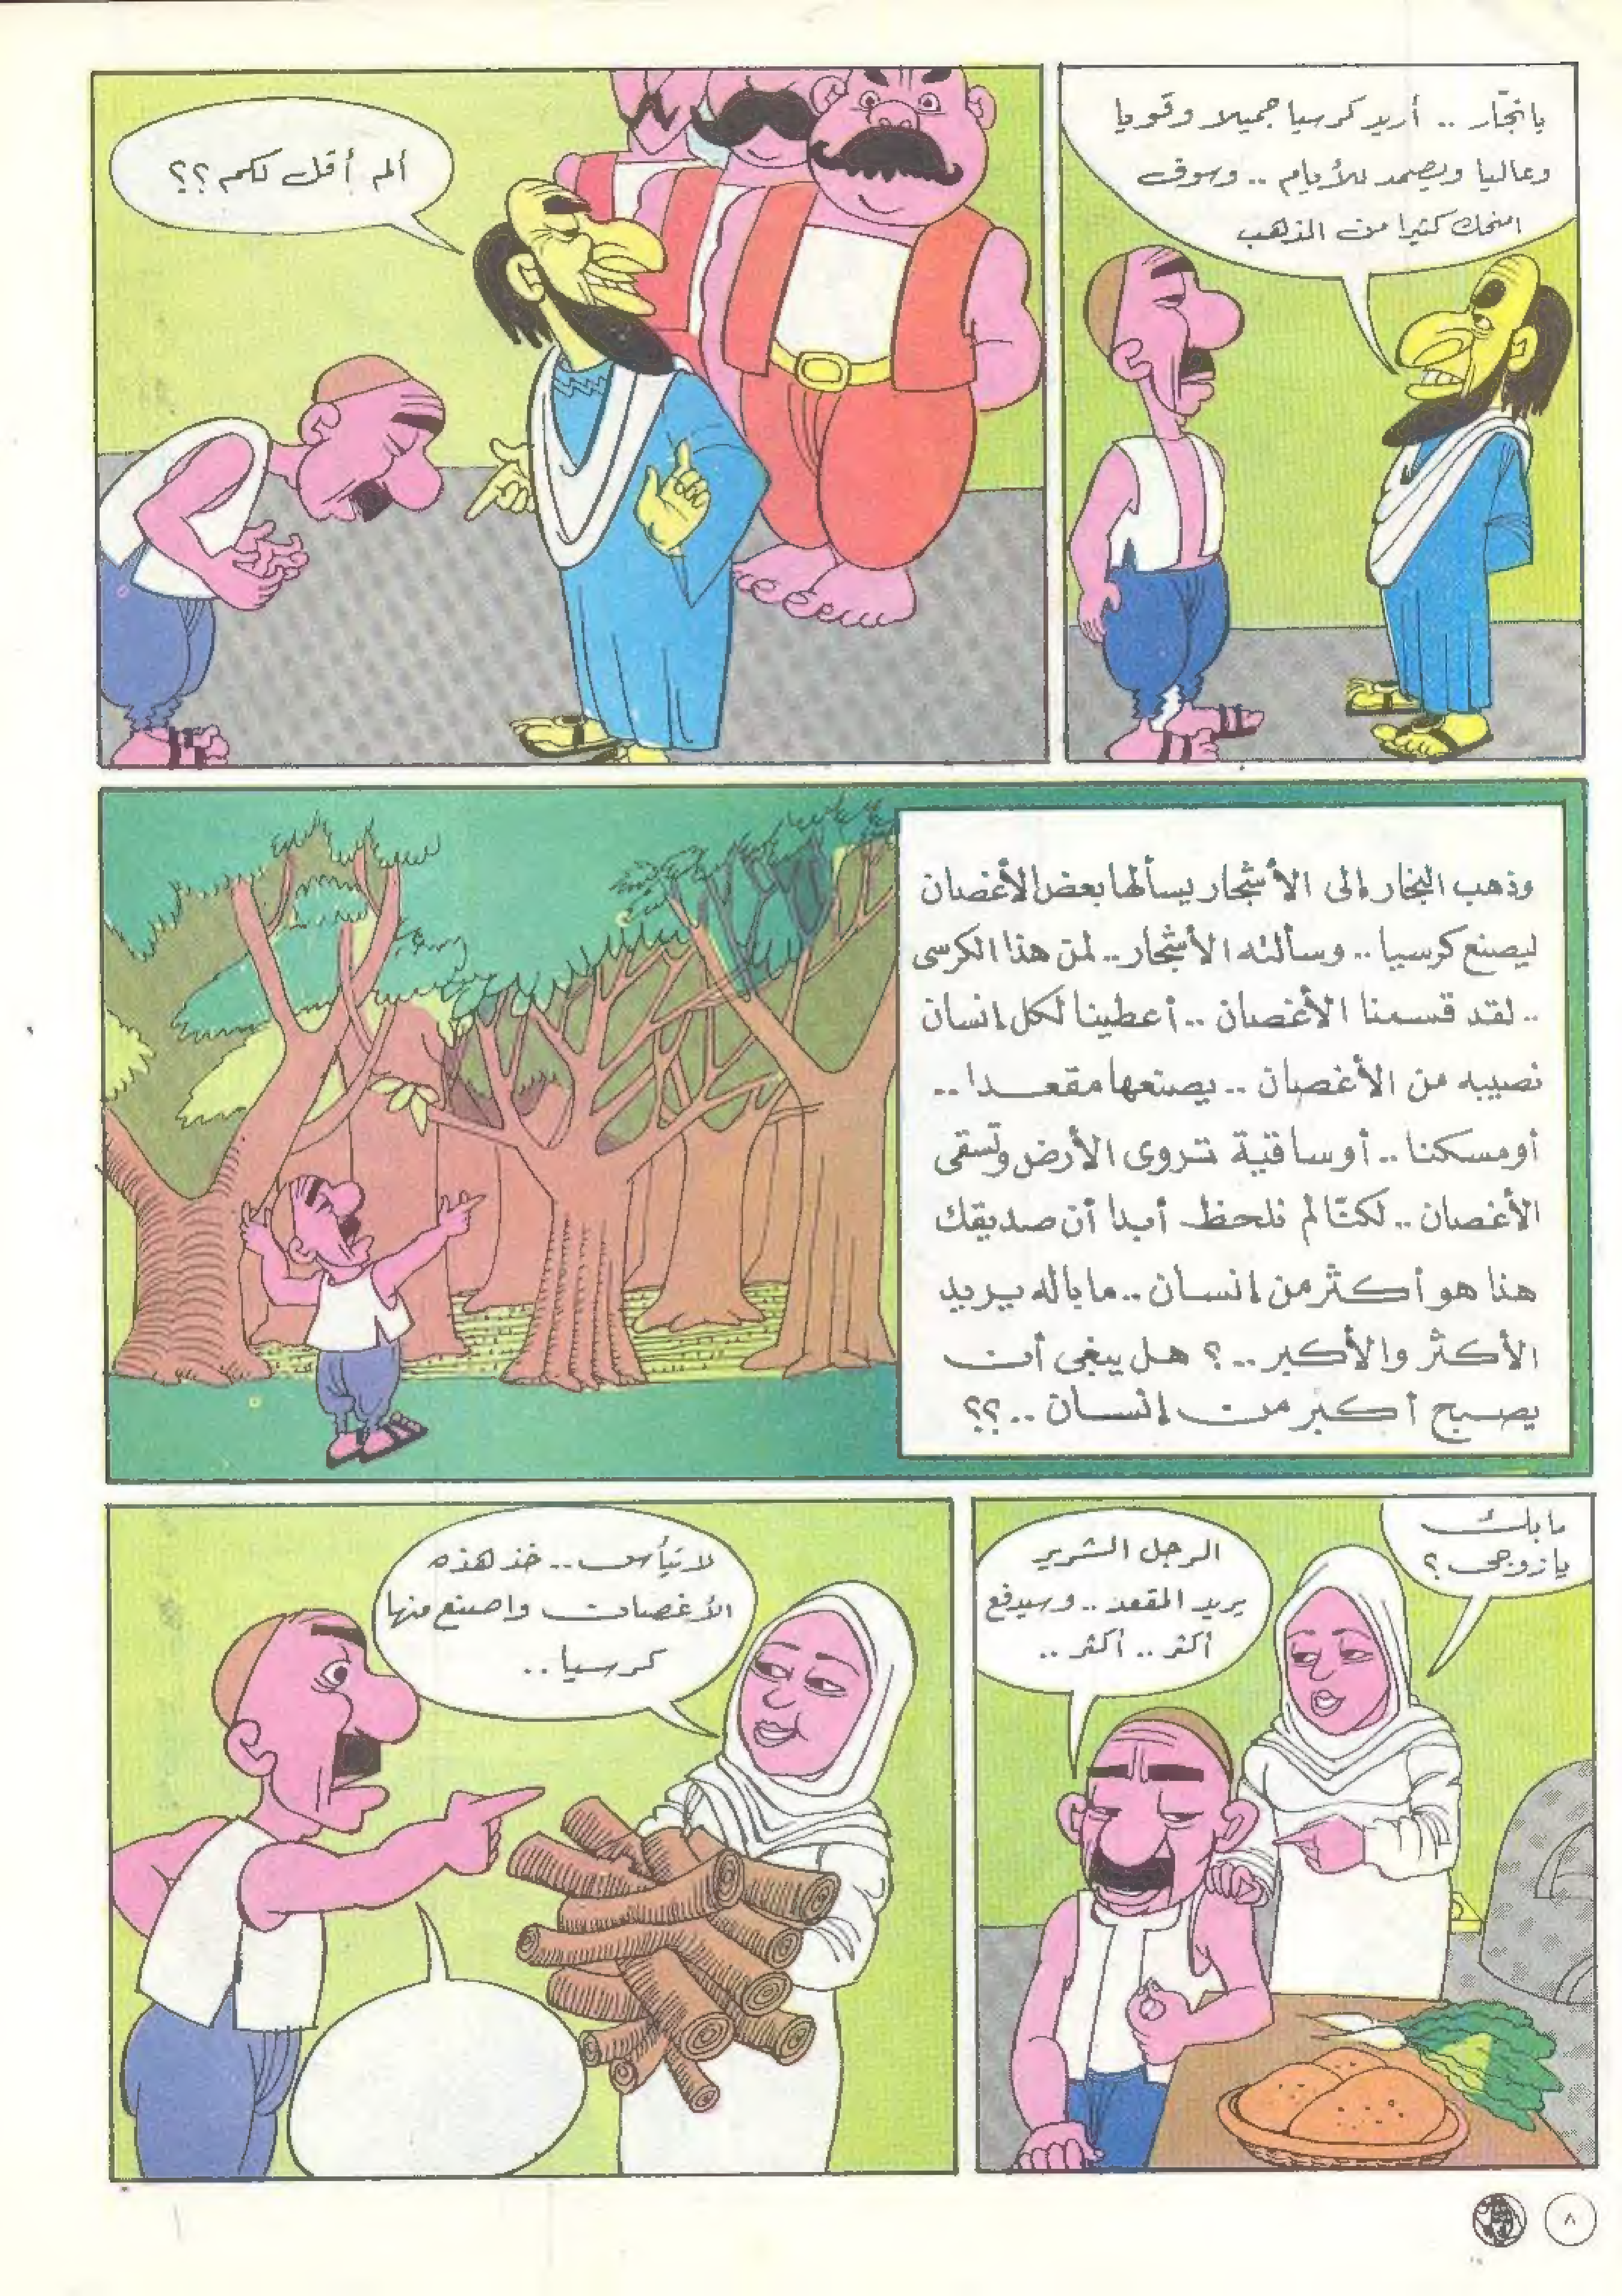 يا نجّار .. أريد كرسيا جميلا وقويا
وعاليا ويصمد للأيام .. وسوف
امنحك كثيرا من الذهب
ألم أقل لكم ؟؟
وذهب النجار إلى الأشجار يسألها بعض الأغصان
ليصنع كرسيا .. وسألته الأشجار .. لمن هذا الكرسى
.. لقد قسمنا الأغصان .. أعطينا لكل إنسان
نصيبه من الأغصان .. يصنعها مقعدا ..
أو مسكنا .. أو ساقية تروى الأرض وتسقى
الأغصان .. لكنّا لم نلحظ أبدا أن صديقك
هذا هو أكثر من إنسان .. ما باله يريد
الأكثر والأكبر .. ؟ هل يبغى أن
يصبح أكبر من إنسان .. ؟؟
ما بك
يا زوجى ؟
الرجل الشرير
يريد المقعد .. وسيدفع
أكثر .. أكثر ..
لا تيأس .. خذ هذه
الأغصان واصنع منها
كرسيا ..
٨